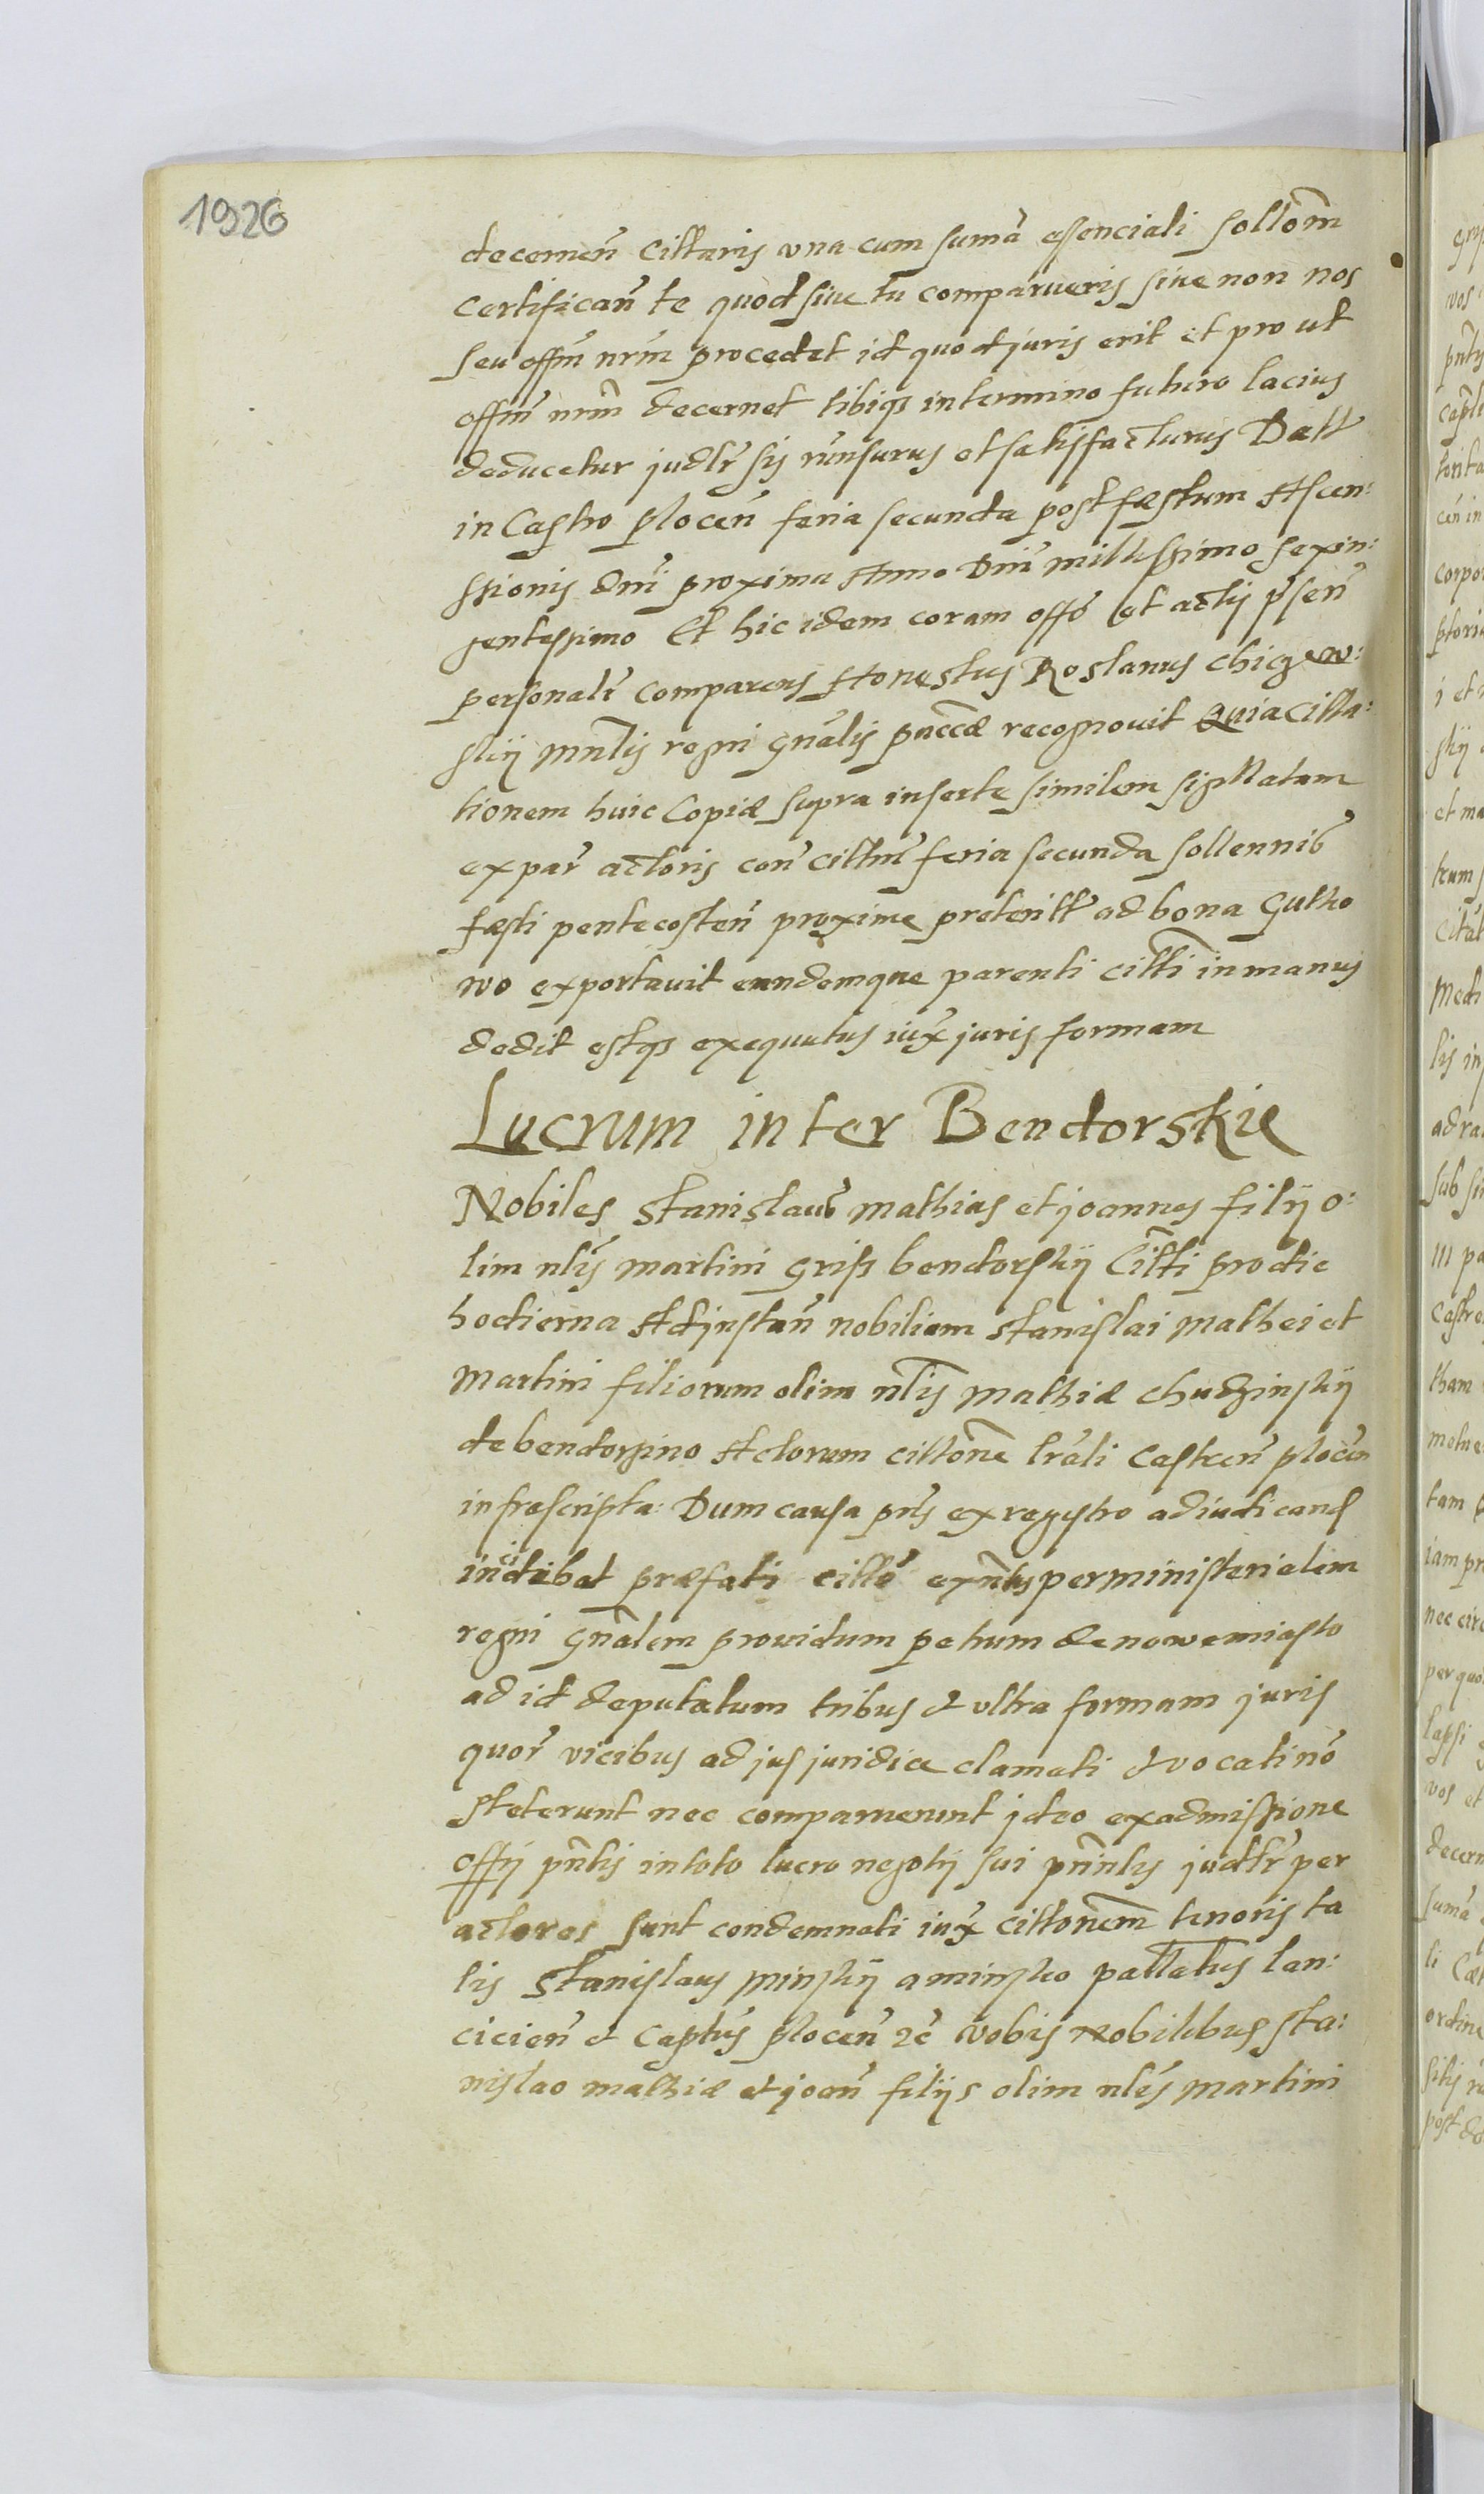 1926
decernen̄ cittaris vna cum sumā esenciali sollom̄
certifican̄ te quod siue tu comparueris siue non nos
seu offm̄ nrm̄ procedet id quod juris erit et pro ut
offm̄ nrm̄ decernet tibiqȝ in termino futuro lacius
deducetur judlr̄ sis rūnsurus et satisfacturus Datt
in Castro plocen̄ feria secunda post fæstum Ascen:
ssionis dnī proxima Anno Dnī millessimo sexin:
gentessimo Et hic idem coram offō et actis pn̄sen̄
personalr̄ comparens Honestus Roslanus chiczew:
skij mnl̄is regni gnālis pucc̄æ recognouit Quia citta:
tionem huic Copiæ supra inserte similem sigillatam
ex par̄ actoris con̄ cittm̄ feria secunda sollennis
fæsti pentecosten̄ proxime preteritt̄ ad bona Gutko
wo exportauit eundemque parenti citti in manus
dedit estqȝ exequutus iux̄ juris formam
Lucrum inter Bendorskie
Nobiles Stanislaus mathias et joannes filij o:
lim nlīs martini griss bendorskij Citti pro die
hodierna Ad jnstan̄ nobilium Stanislai mathei et
martini filiorum olim nlīs mathiæ chudzinskij
de bendorzino Actorum cittonē lrāli Castren̄ plocen̄
infrascripta: Dum causa pn̄s ex regestro adiudicand
incidebat præfati cittō exn̄tes per ministerialem
regni gnālem prouidum petrum de nowemiasto
ad id deputatum tribus et vltra formam juris
quor̄ vicibus ad jus juridice clamati et vocati nō
steterunt nec comparuerunt jdeo ex admissione
offij pn̄tis in toto lucro negotij sui prn̄ntis judlr̄ per
actores sunt condemnati iux̄ cittonem̄ tenoris ta
lis Stanislaus minskij a minsko pallatus lan:
cicien̄ et Captus̄ plocen̄ zc̄ vobis Nobilibus sta:
nislao mathiæ et joan̄ filijs olim nlīs martini